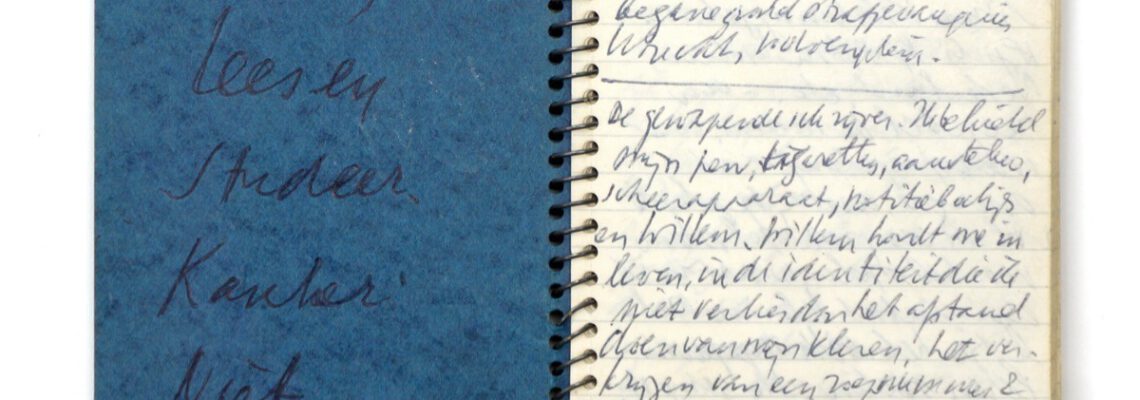 Lees en
Studeer
Niet
begane grond strafgevangenis
Utrecht, Wolvenplein.
De gewapende schrijver. Ik behield
mijn pen, sigaretten, aansteker,
scheerapparaat, notitieboekje
en Willem. Willem houdt me in
leven, in de identiteit die ik
niet verlies door het afstand
doen van mijn kleren, het ver-
krijgen van een &